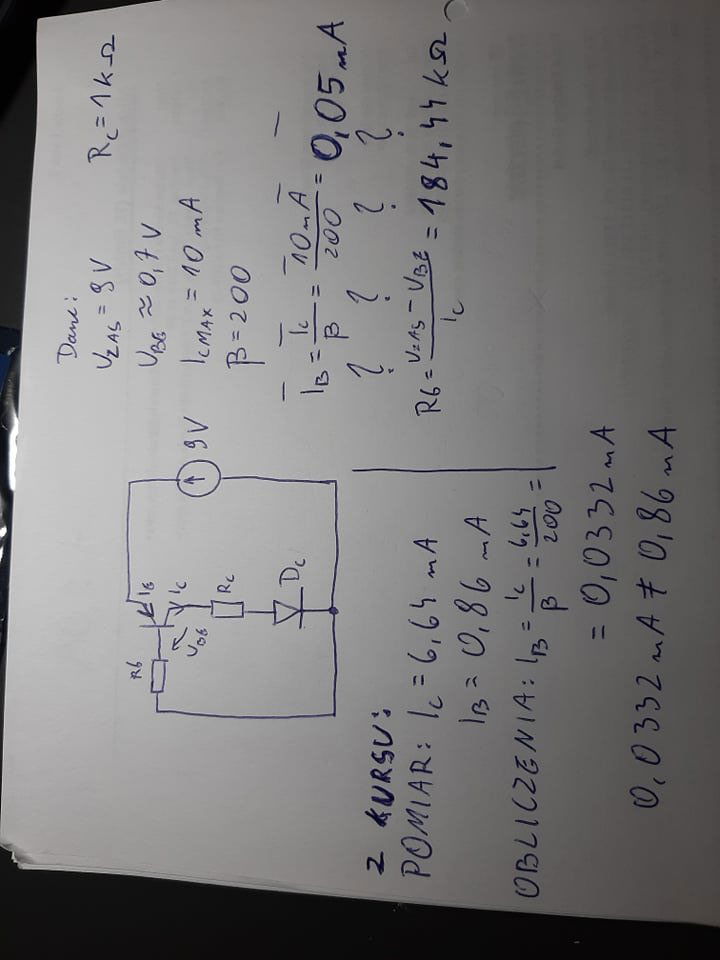 Dane:
UZAS = 9V
RC = 1kΩ
UBE ≈ 0,7V
ICMAX = 10mA
β = 200
IB = IC / β = 10mA / 200 = 0,05mA
? ? ? ?
Rb = UZAS - UBE / IC = 184,44kΩ
Rb
IE
IC
UBE
RC
DC
9V
Z KURSU:
POMIAR: IC = 6,64 mA
IB = 0,86 mA
OBLICZENIA: IB = IC / β = 6,64 / 200 =
= 0,0332 mA
0,0332 mA ≠ 0,86 mA